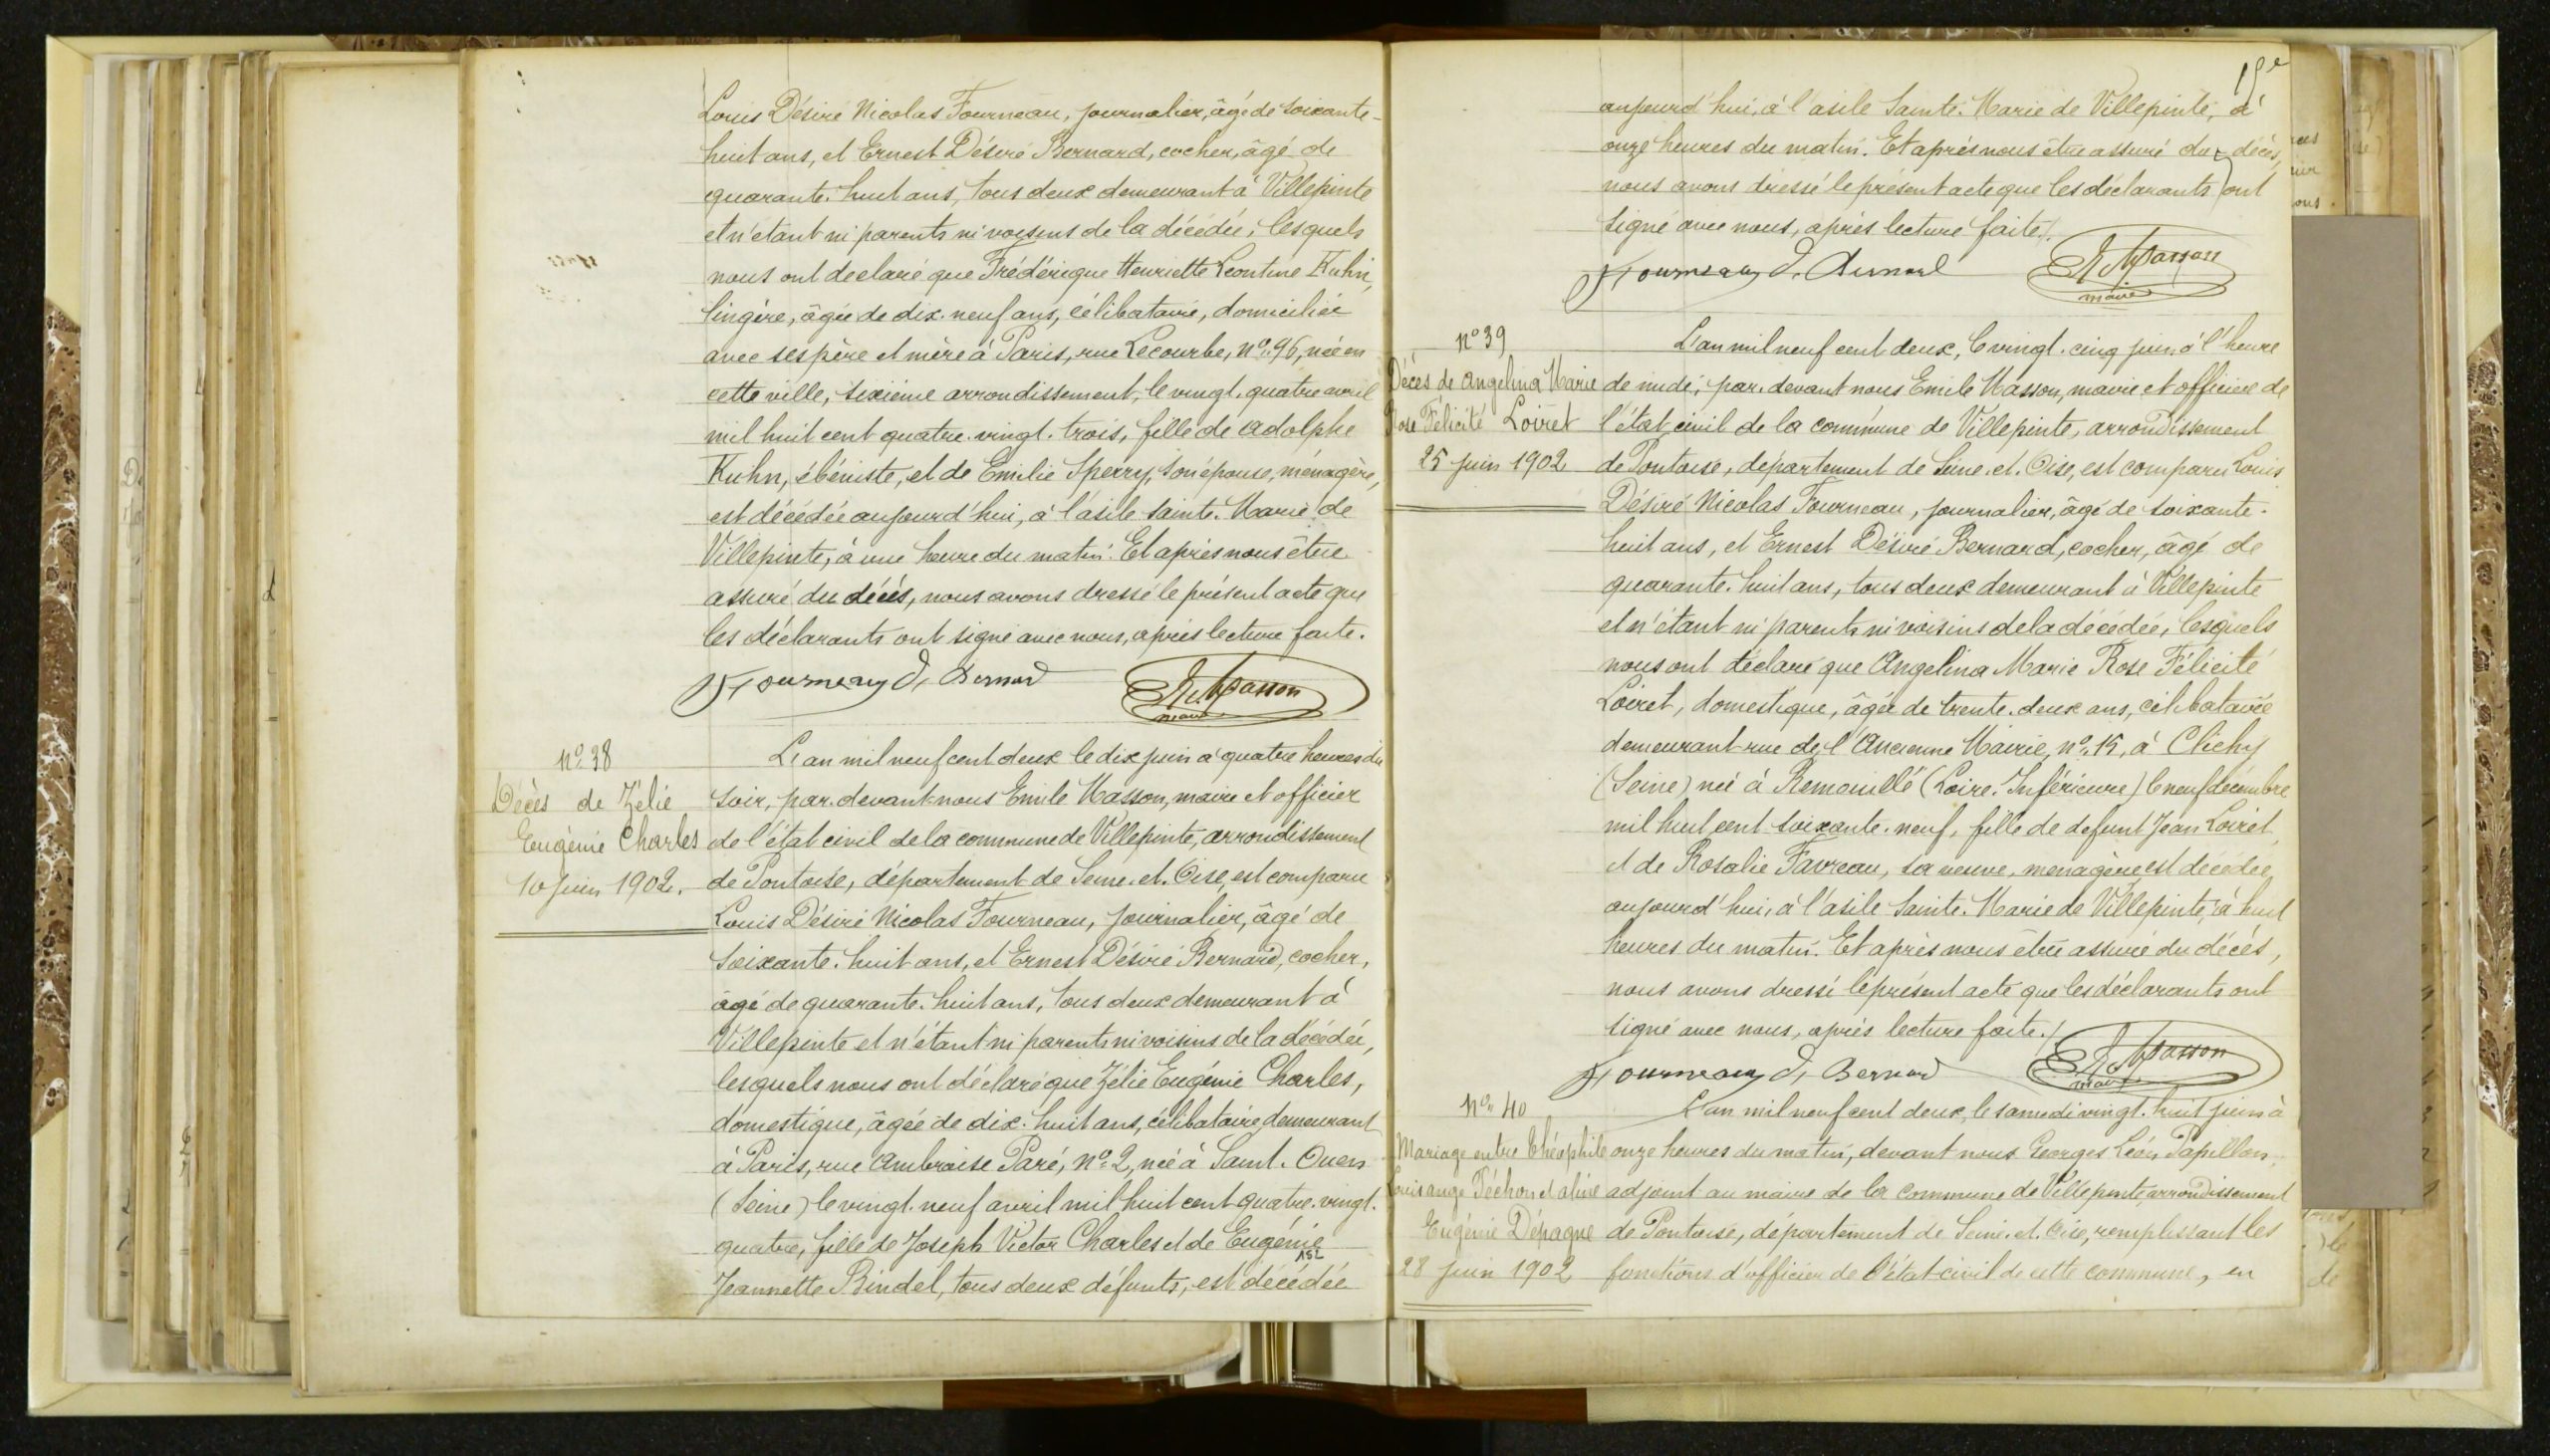 Louis Désiré Nicolas Fourneau, journalier, âgé de soixante-
huit ans, et Ernest Désiré Bernard, cocher, âgé de
quarante-huit ans, tous deux demeurant à Villepinte
et n'étant ni parents ni voisins de la décédée; lesquels
nous ont déclaré que Frédérique Henriette Léontine Kuhn,
lingère, âgée de dix-neuf ans, célibataire, domiciliée
avec ses père et mère à Paris, rue Lecourbe, n° 96, née en
cette ville, sixième arrondissement, le vingt-quatre avril
mil huit cent quatre-vingt-trois, fille de Adolphe
Kuhn, ébéniste, et de Emilie Sperry, son épouse, ménagère,
est décédée aujourd'hui, à l'asile Sainte-Marie de
Villepinte, à une heure du matin. Et après nous être
assuré du décès, nous avons dressé le présent acte que
les déclarants ont signé avec nous, après lecture faite.
Fourneau D. Bernard E. Masson
maire
N° 38
Décès de Zélie
Eugénie Charles
10 juin 1902.
L'an mil neuf cent deux le dix juin à quatre heures du
soir, par-devant nous Emile Masson, maire et officier
de l'état civil de la commune de Villepinte, arrondissement
de Pontoise, département de Seine-et-Oise, est comparu
Louis Désiré Nicolas Fourneau, journalier, âgé de
soixante-huit ans, et Ernest Désiré Bernard, cocher,
âgé de quarante-huit ans, tous deux demeurant à
Villepinte et n'étant ni parents ni voisins de la décédée,
lesquels nous ont déclaré que Zélie Eugénie Charles,
domestique, âgée de dix-huit ans, célibataire, demeurant
à Paris, rue Ambroise Paré, n° 2, née à Saint-Ouen
(Seine) le vingt-neuf avril mil huit cent quatre-vingt-
quatre, fille de Joseph Victor Charles et de Eugénie
Jeannette Rindel, tous deux défunts, est décédée
aujourd'hui, à l'asile Sainte-Marie de Villepinte, à
onze heures du matin. Et après nous être assuré du décès,
nous avons dressé le présent acte que les déclarants ont
signé avec nous, après lecture faite.
Fourneau D. Bernard E. Masson
maire
N° 39
Décès de Angelina Marie
Rose Félicité Loiret
25 juin 1902
L'an mil neuf cent deux, le vingt-cinq juin à l'heure
de midi, par-devant nous Emile Masson, maire et officier de
l'état civil de la commune de Villepinte, arrondissement
de Pontoise, département de Seine-et-Oise, est comparu Louis
Désiré Nicolas Fourneau, journalier, âgé de soixante-
huit ans, et Ernest Désiré Bernard, cocher, âgé de
quarante-huit ans, tous deux demeurant à Villepinte
et n'étant ni parents ni voisins de la décédée, lesquels
nous ont déclaré que Angelina Marie Rose Félicité
Loiret, domestique, âgée de trente-deux ans, célibataire
demeurant rue de l'Ancienne Mairie, n° 15, à Clichy
(Seine) née à Remouillé (Loire-Inférieure) le neuf décembre
mil huit cent soixante-neuf, fille de defunt Jean Loiret
et de Rosalie Favreau, sa veuve, ménagère est décédée
aujourd'hui, à l'asile Sainte-Marie de Villepinte, à huit
heures du matin. Et après nous être assuré du décès,
nous avons dressé le présent acte que les déclarants ont
signé avec nous, après lecture faite.
Fourneau D. Bernard E. Masson
maire
N° 40
Mariage entre Théophile
Louis ange Péchon et aline
Eugénie Dépagne
28 juin 1902
L'an mil neuf cent deux, le samedi vingt-huit juin à
onze heures du matin, devant nous Georges Léon Papillon,
adjoint au maire de la commune de Villepinte, arrondissement
de Pontoise, département de Seine-et-Oise, remplissant les
fonctions d'officier de l'état-civil de cette commune, en